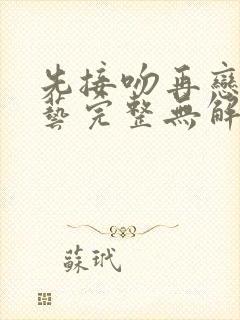 先接吻再戀
藝完整無解
蘇玳